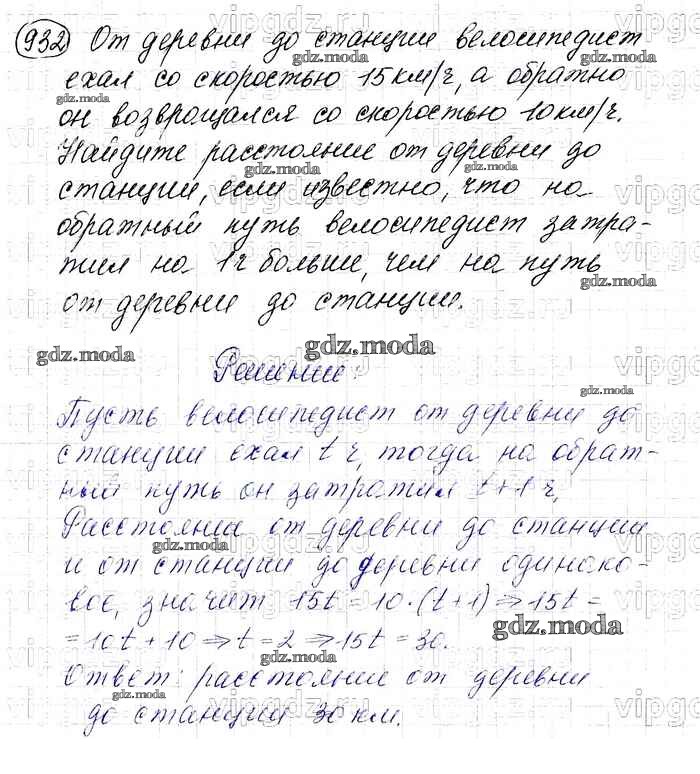 932 От деревни до станции велосипедист
ехал со скоростью 15 км/ч, а обратно
он возвращался со скоростью 10 км/ч.
Найдите расстояние от деревни до
станции, если известно, что на
обратный путь велосипедист затра-
тил на 1 ч больше, чем на путь
от деревни до станции.
Решение:
Пусть велосипедист от деревни до
станции ехал t ч, тогда на обрат-
ный путь он затратил t+1 ч,
Расстояние от деревни до станции
и от станции до деревни одинако-
вое, значит 15t = 10·(t+1) ⇒ 15t =
= 10t + 10 ⇒ t = 2 ⇒ 15t = 30.
Ответ: расстояние от деревни
до станции 30 км.
gdz.moda
vipgdz.ru